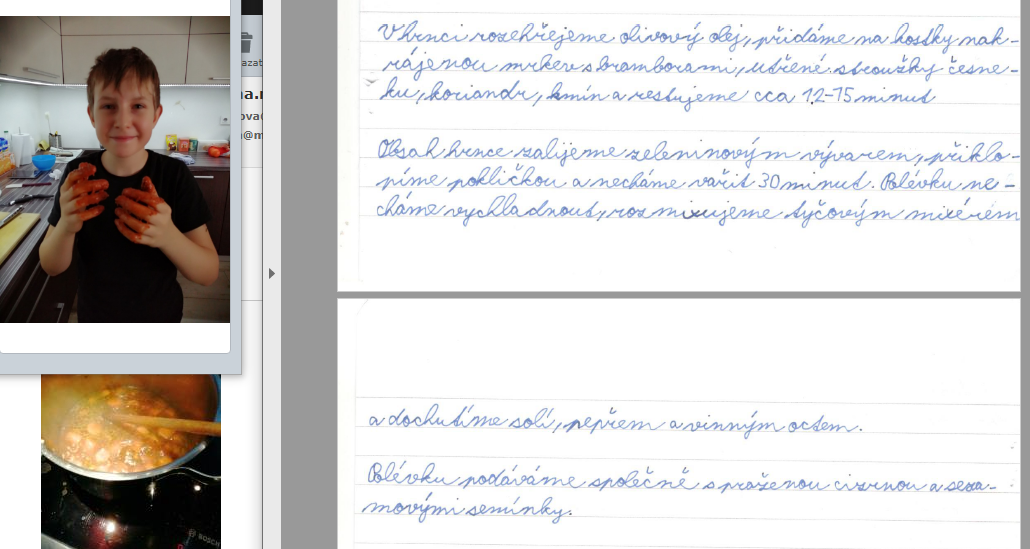 azat
a.r
ova
@m
V hrnci rozehřejeme olivový olej, přidáme na kostky nak-
rájenou mrkev s bramborami, utřené stroužky česne-
ku, koriandr, kmín a restujeme cca 12-15 minut
Obsah hrnce zalijeme zeleninovým vývarem, příklo-
píme pokličkou a necháme vařit 30 minut. Polévku ne-
cháme vychladnout, rozmixujeme tyčovým mixérem
a dochutíme solí, pepřem a vinným octem.
Polévku podáváme společně s praženou cizrnou a seza-
movými semínky.
BOSCH